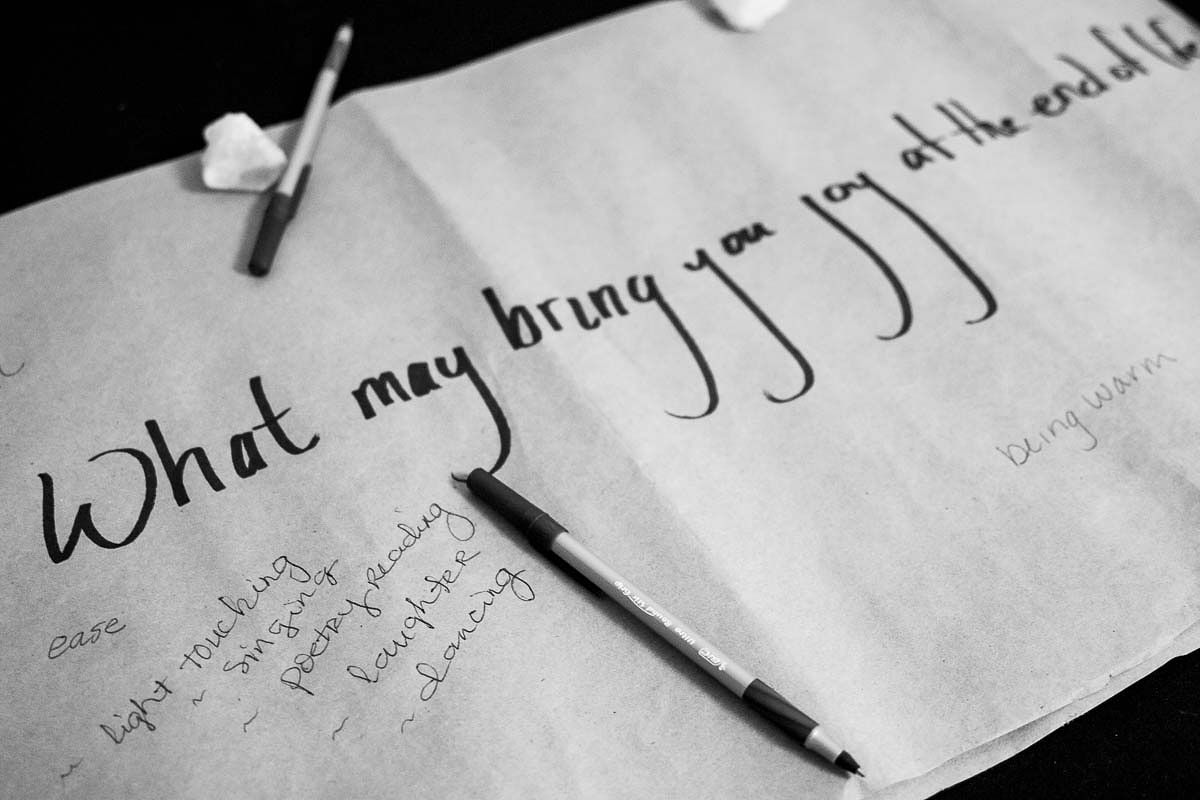 What may bring you joy at the end of life
being warm
ease
~ light touching
~ singing
~ poetry reading
~ laughter
~ dancing
BIC